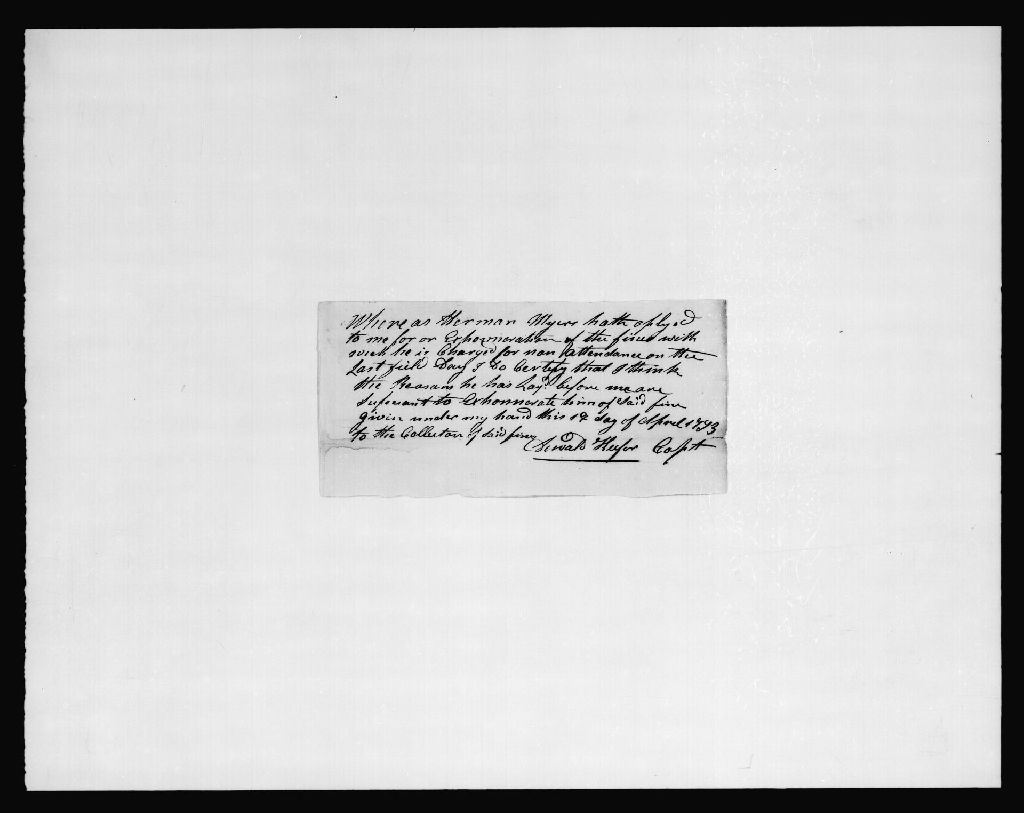 Where as Herman Myers hath aplyed
to me for an Exhowneration of the fines with
wich he is Charged for non attendance on the
Last field Day I Do Certefy that I think
the Reasons he has Layd before me are
Sufficant to Exhonnerate him of Said fine
given under my hand this 12 Day of April 1793
to the Collector of Said fines
Keyser Capt